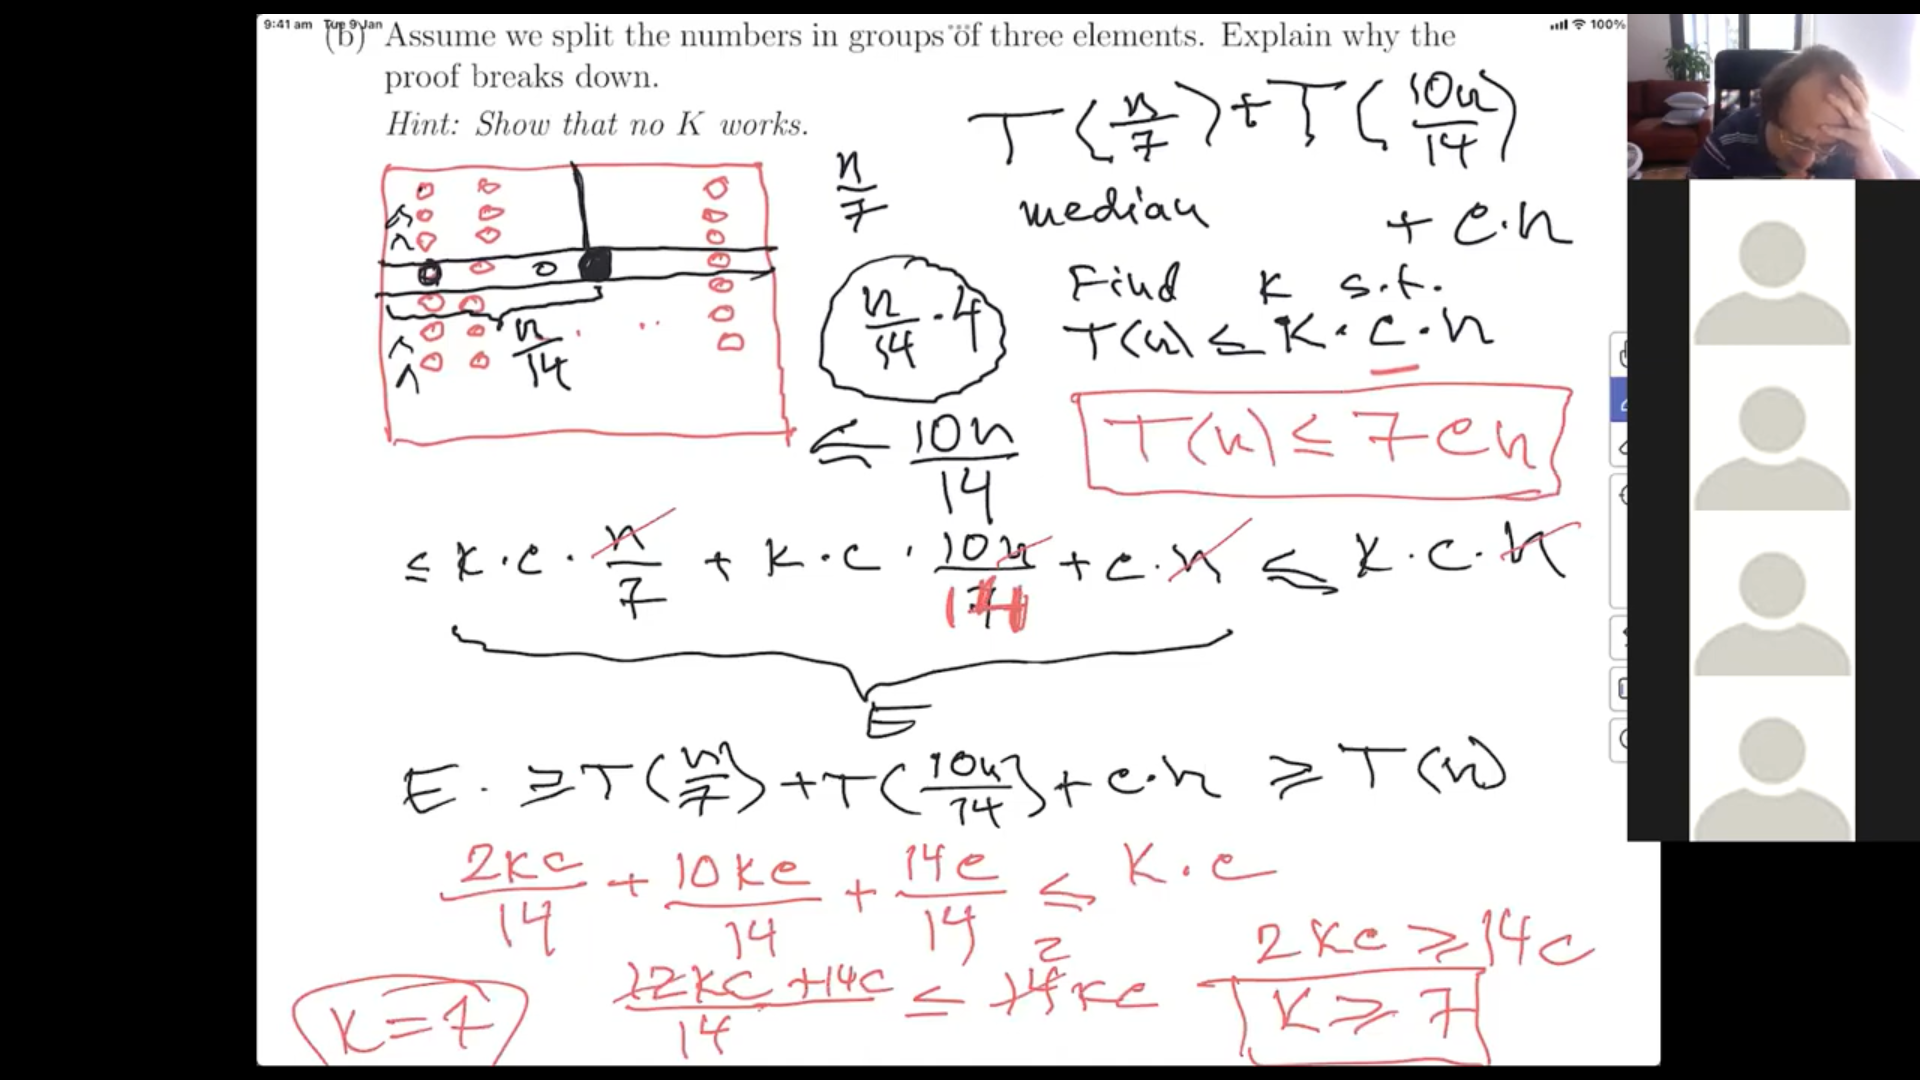 9:41 am Tue 9 Jan
100%
(b) Assume we split the numbers in groups of three elements. Explain why the
proof breaks down.
Hint: Show that no K works.
T(n/7) + T(10n/14)
n/7
median
+ c.n
Find K s.t.
n/14 . 4
T(n) ≤ K . c . n
n/14
≤ 10n/14
T(n) ≤ 7cn
≤ K . c . n/7 + K . c . 10n/14 + c . n ≤ K . c . n
E
E . ≥ T(n/7) + T(10n/14) + c.n ≥ T(n)
2Kc/14 + 10Kc/14 + 14c/14 ≤ K . c
2Kc ≥ 14c
2
12Kc + 14c/14 ≤ 14Kc
K ≥ 7
K = 7